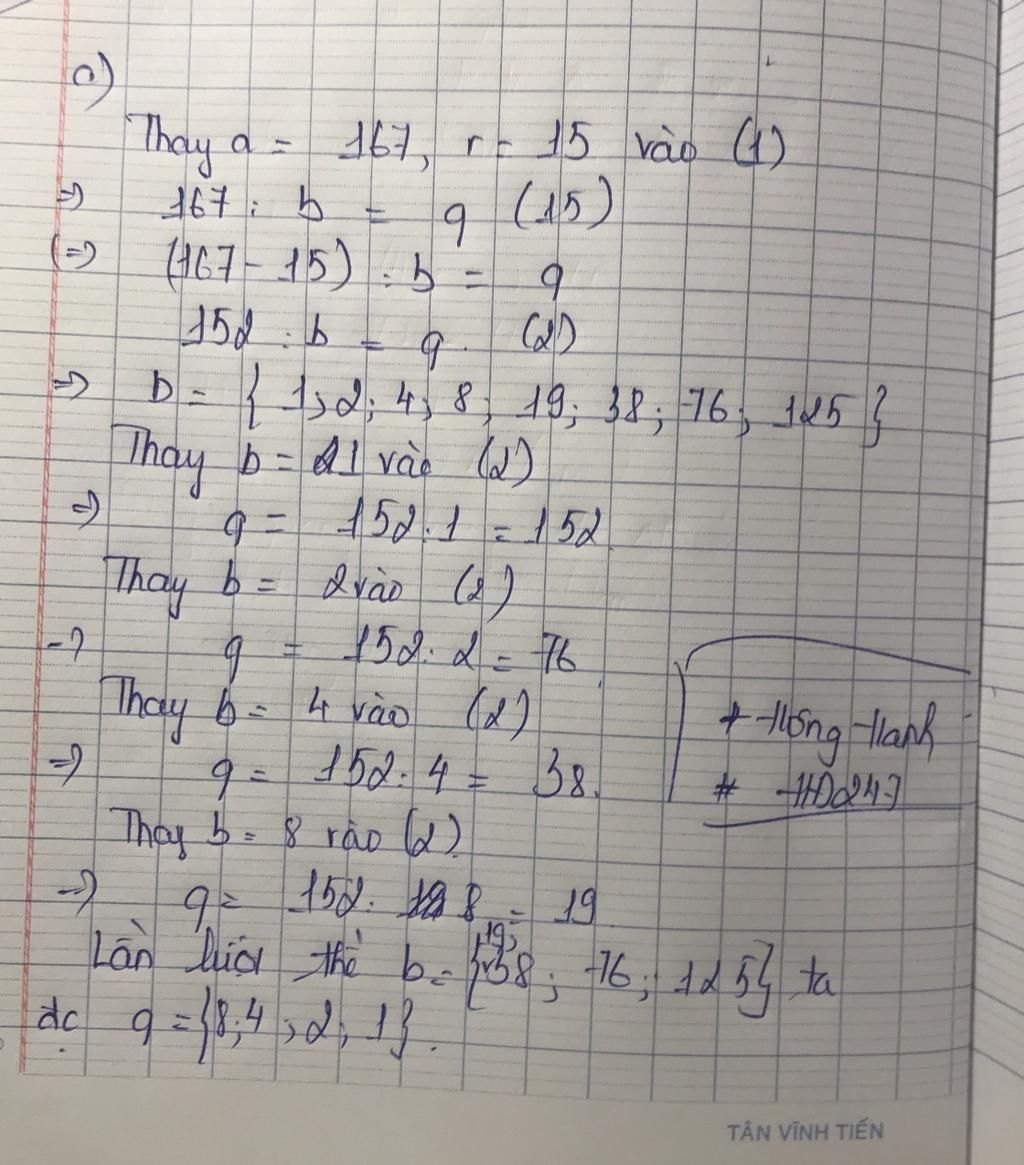 a)
Thay a = 167, r = 15 vào (1)
=> 167 : b = q (15)
(=) (167 - 15) : b = q
152 : b = q (2)
=> b = { 1; 2; 4; 8; 19; 38; 76; 125 }
Thay b = 1 vào (2)
=> q = 152 : 1 = 152
Thay b = 2 vào (2)
=> q = 152 : 2 = 76
Thay b = 4 vào (2)
=> q = 152 : 4 = 38.
* Hồng Hanh
* HD247
Thay b = 8 vào (2).
=> q = 152 : 8 = 19
Lần lượt thế b = { 19; 38; 76; 125 } ta
đc q = { 8; 4; 2; 1 }.
TÂN VĨNH TIẾN